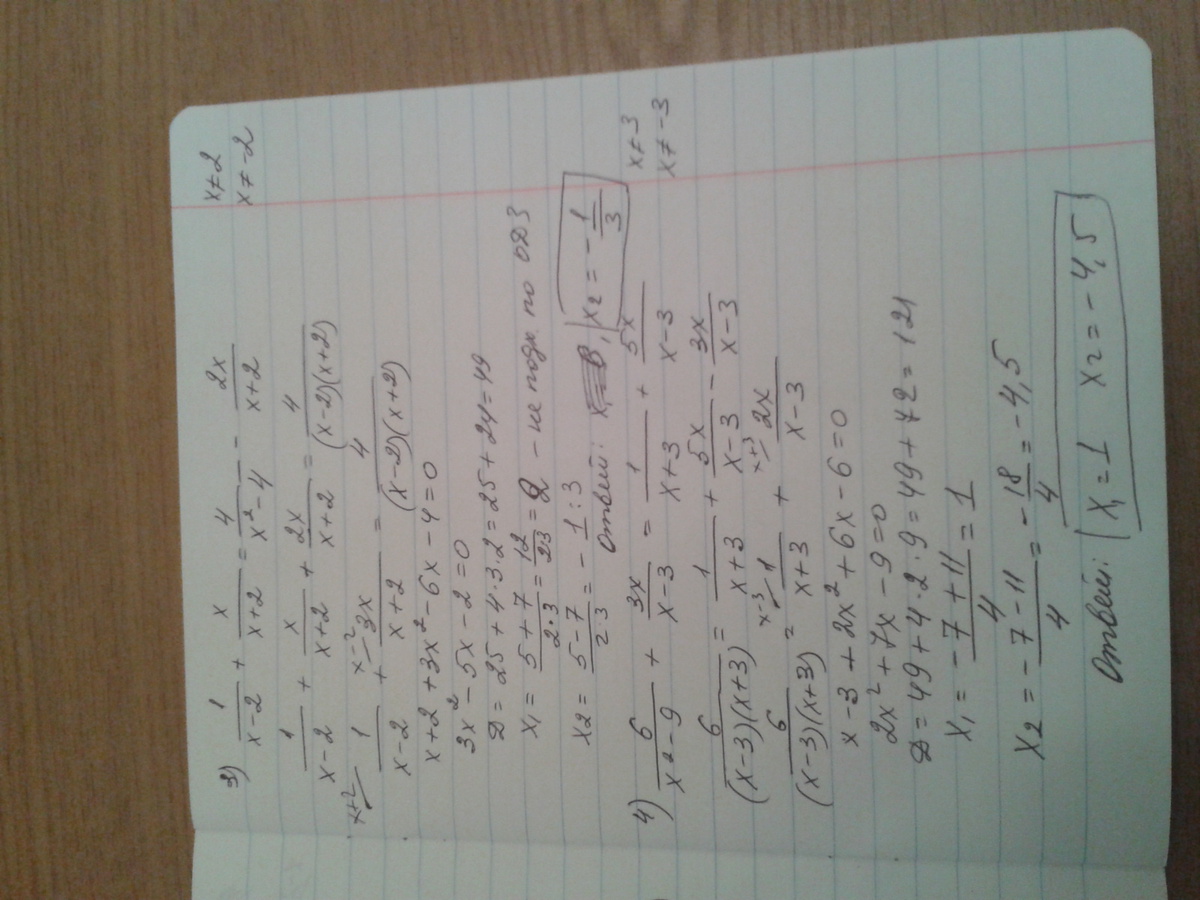 3) 1/(x-2) + x/(x+2) = 4/(x²-4) - 2x/(x+2) x≠2
x≠-2
1/(x-2) + x/(x+2) + 2x/(x+2) = 4/((x-2)(x+2))
x+2 1/(x-2) + x-2 3x/(x+2) = 4/((x-2)(x+2))
x+2+3x²-6x-4=0
3x²-5x-2=0
D=25+4·3·2=25+24=49
x₁ = (5+7)/(2·3) = 12/23 = 2 - не подх. по ОДЗ
x₂ = (5-7)/(2·3) = -1:3
Ответ: x₂ = -1/3
4) 6/(x²-9) + 3x/(x-3) = 1/(x+3) + 5x/(x-3) x≠3
x≠-3
6/((x-3)(x+3)) = 1/(x+3) + 5x/(x-3) - 3x/(x-3)
6/((x-3)(x+3)) = x-3 1/(x+3) + x+3 2x/(x-3)
x-3+2x²+6x-6=0
2x²+7x-9=0
D=49+4·2·9=49+72=121
x₁ = (-7+11)/4 = 1
x₂ = (-7-11)/4 = -18/4 = -4,5
Ответ: x₁=1 x₂=-4,5